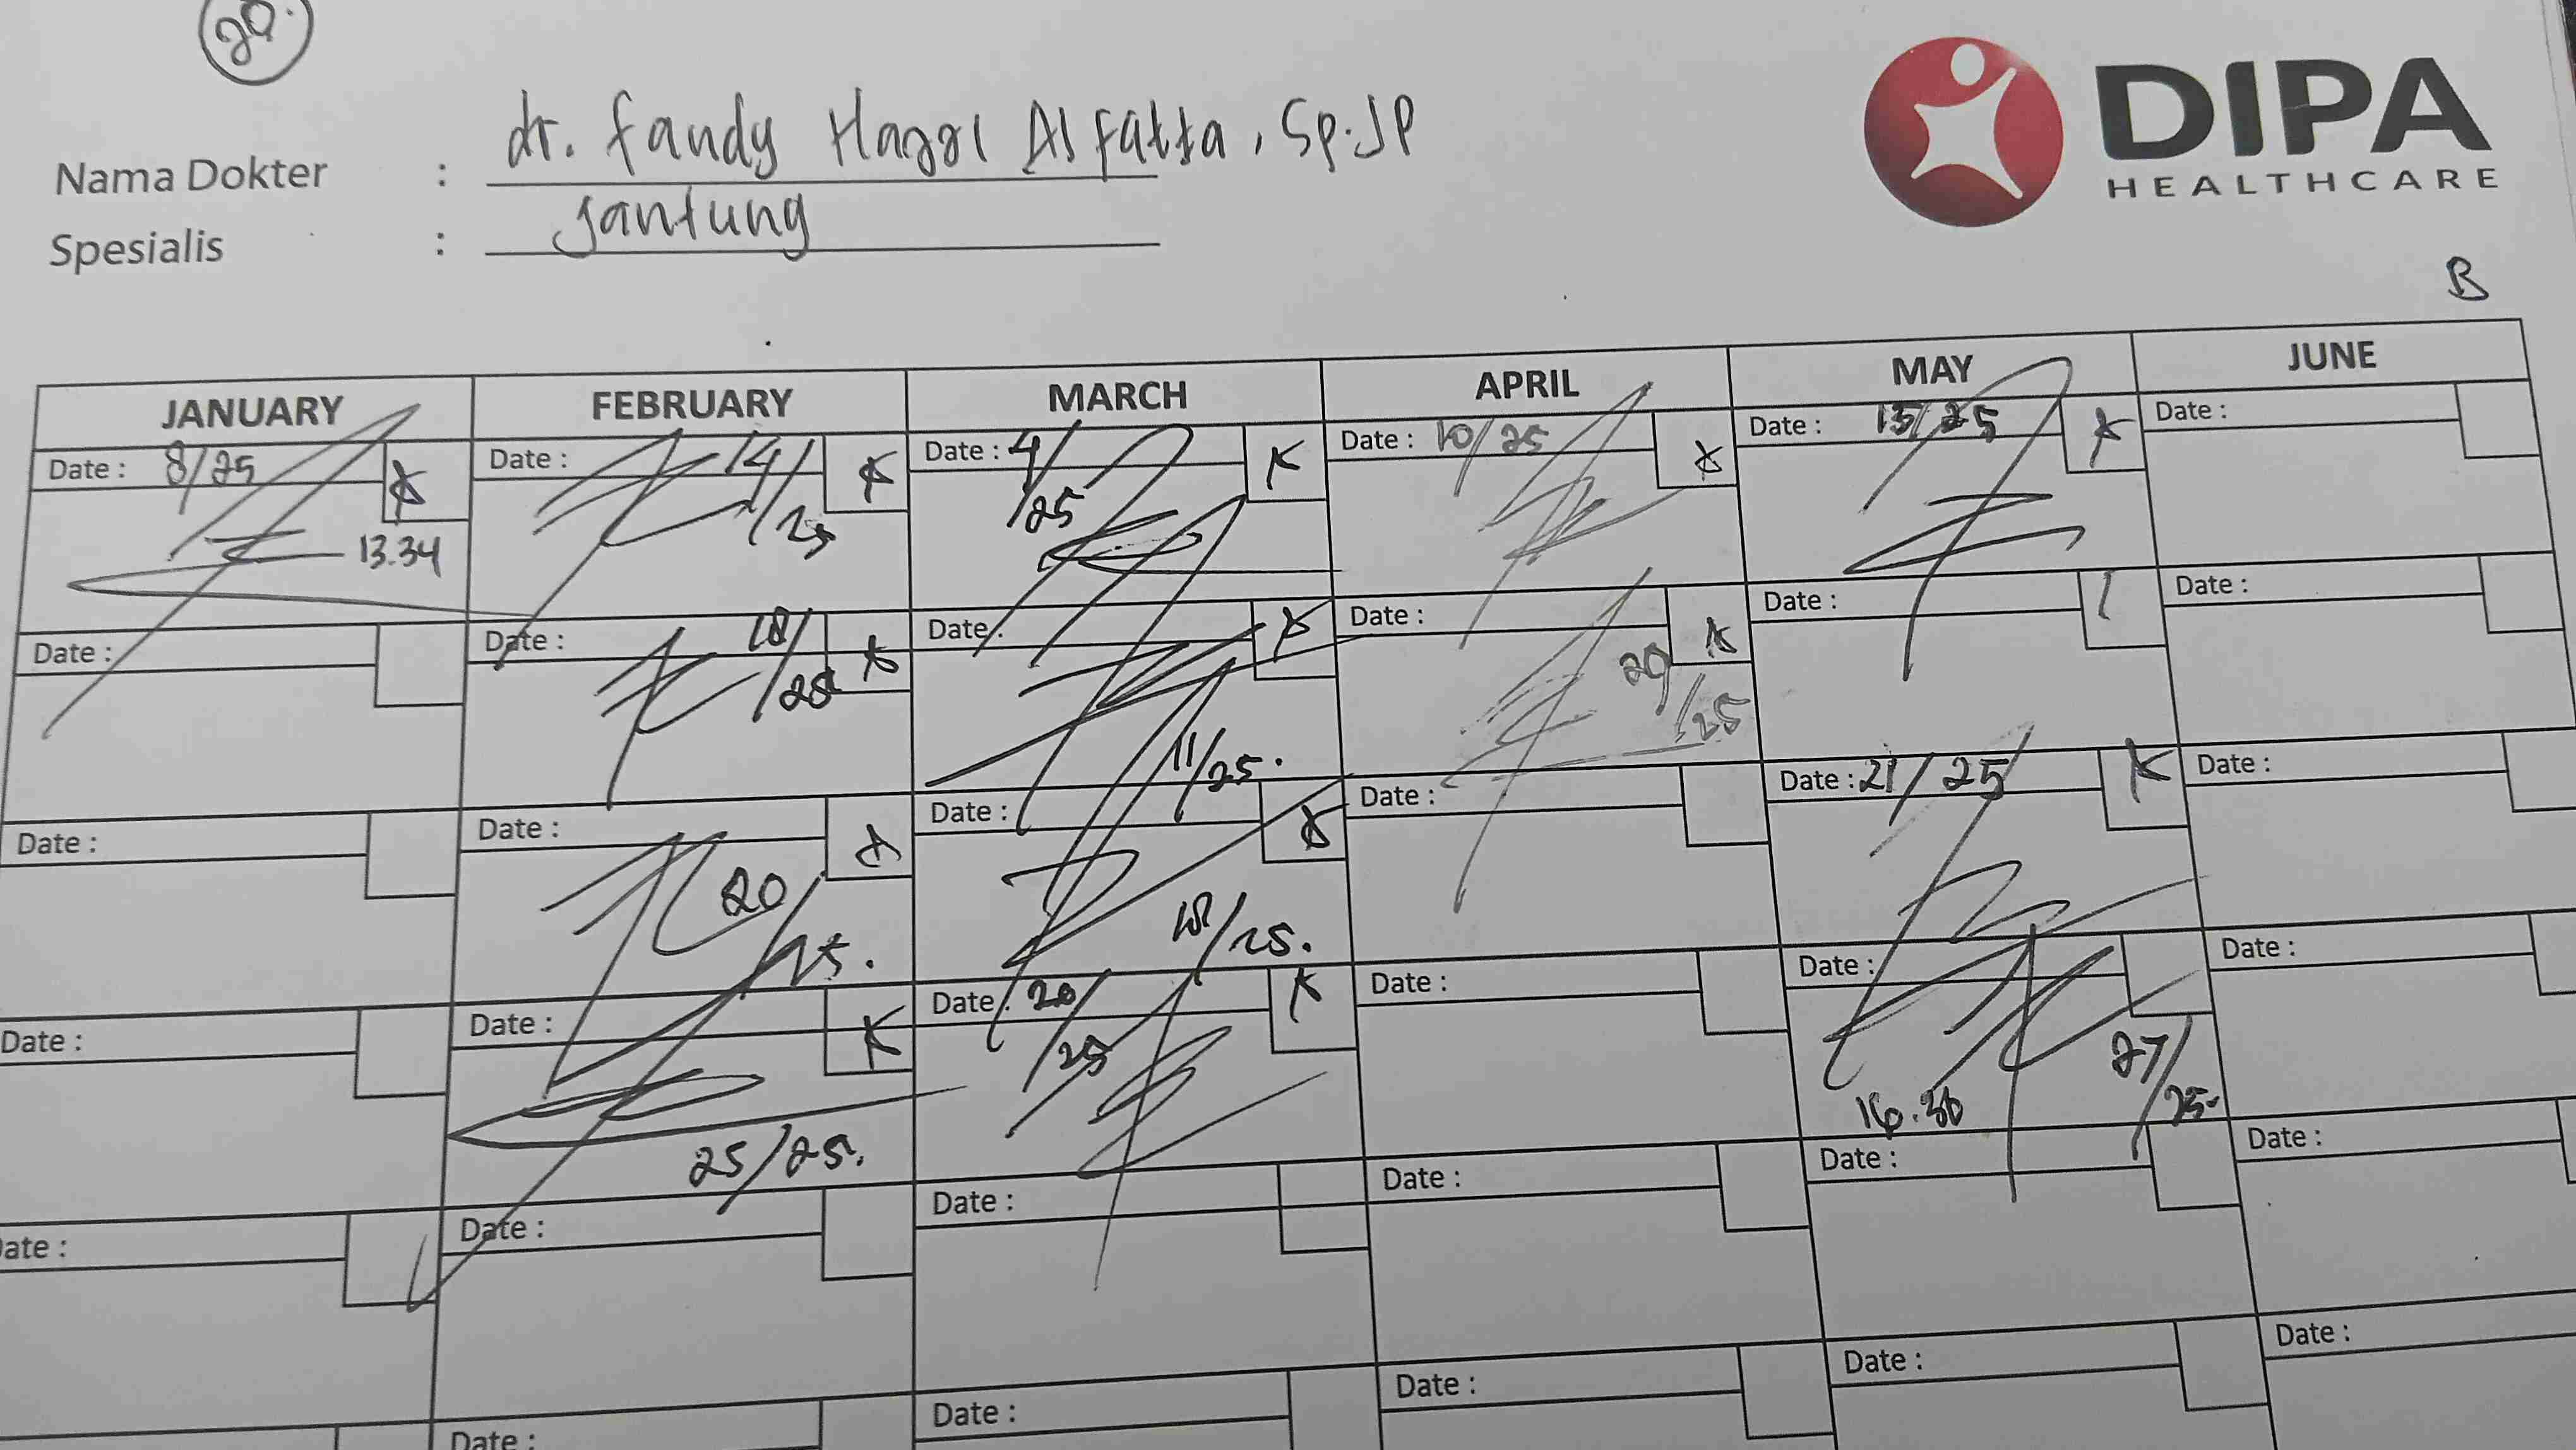 20.
DIPA
HEALTHCARE
Nama Dokter : dr. Fandy Hazzl Alfatta, Sp.JP
Spesialis : Jantung
B
JANUARY FEBRUARY MARCH APRIL MAY JUNE
Date : 8/25 Date : 14/25 Date : 4/25 Date : 10/25 Date : 15/25 Date :
13.34
Date : Date : 18/25 Date : 11/25. Date : 29/25 Date : Date :
Date : Date : 20/25. Date : 18/25. Date : Date : 21/25 Date :
Date : Date : 25/25. Date : 20/25 Date : Date : 27/25. Date :
16.30
Date : Date : Date : Date : Date : Date :
Date : Date : Date : Date : Date :